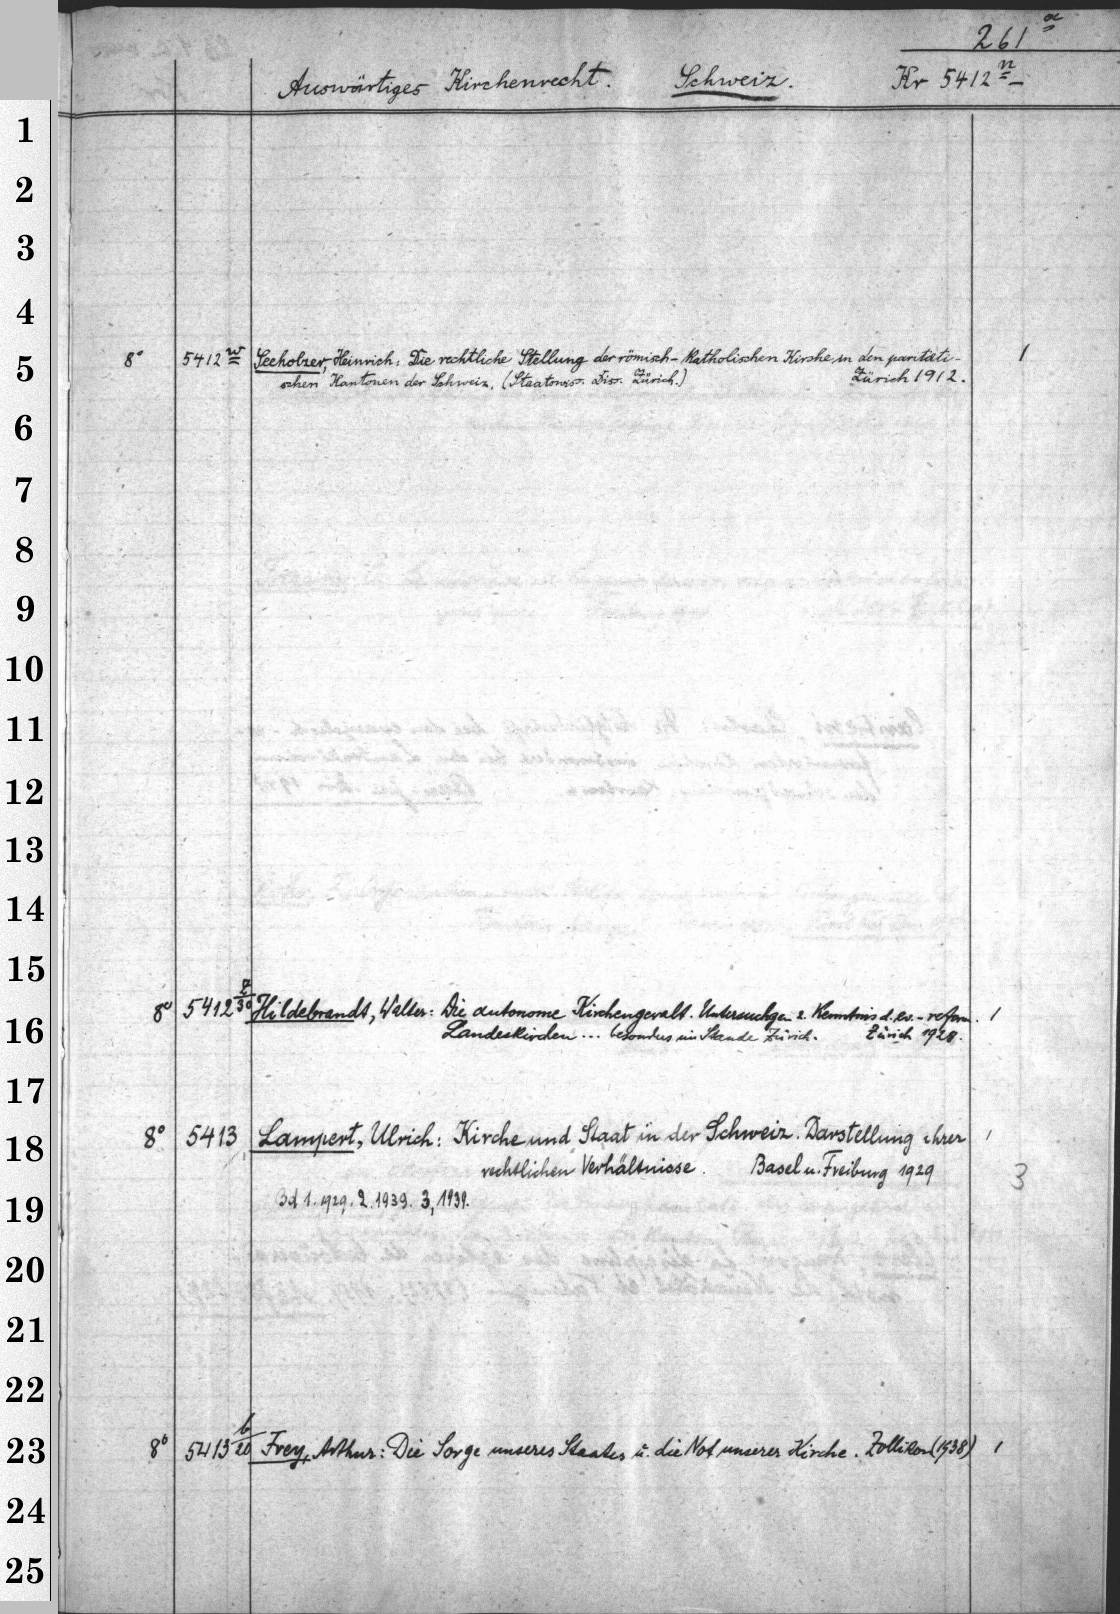 261 a
Auswärtiges Kirchenrecht. Schweiz. Kr 5412 n
1
2
3
4
5
8° 5412 w Seeholzer, Heinrich: Die rechtliche Stellung der römisch-Katholischen Kirche in den paritäti- 1
schen Kantonen der Schweiz. (Staatswiss. Diss. Zürich.) Zürich 1912.
6
7
8
9
10
11
12
13
14
15
8° 5412 30 Hildebrandt, Walter: Die autonome Kirchengewalt. Untersuchgen z. Kenntnis d. ev.-reform. 1
16
Landeskirchen ... besonders im Stande Zürich. Zürich 1928.
17
18
8° 5413 Lampert, Ulrich: Kirche und Staat in der Schweiz. Darstellung ihrer 1
rechtlichen Verhältnisse. Basel u. Freiburg 1929 3
19
Bd 1. 1929. 2. 1939. 3, 1939.
20
21
22
23
8° 5413 b/20 Frey, Arthur: Die Sorge unseres Staates u. die Not unserer Kirche. Zollikon (1938) 1
24
25